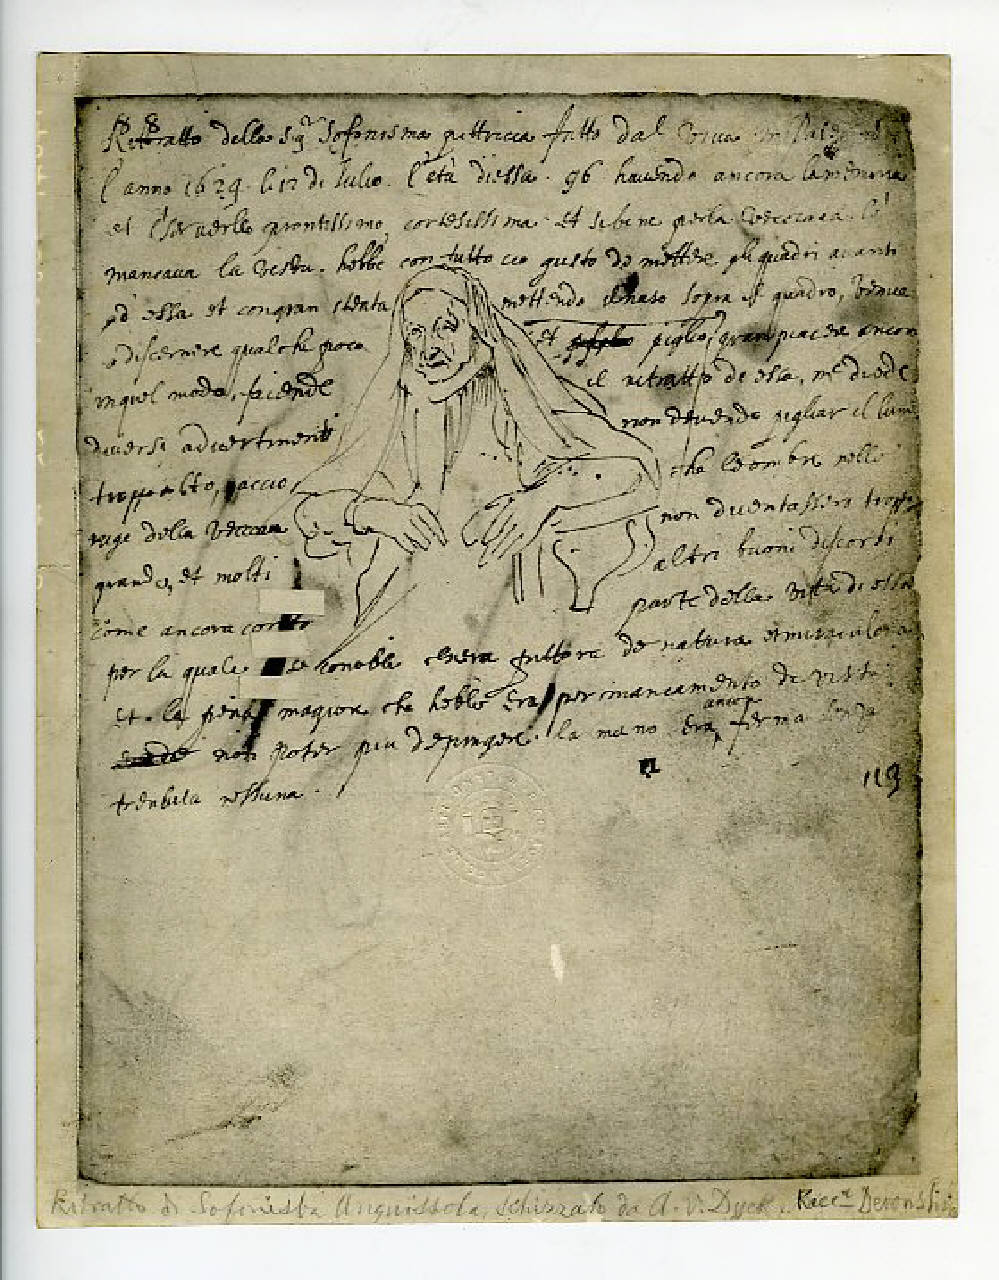 Rittratto della Sigra Sofonisma pittricia fatto dal vivo in Palermo
l'anno 1629 li 12 di Julio. l'età diessa. 96 havendo ancora la memoria
et il serverllo prontissimo, cortesissima et sebene perla
mancava la vesta. hebbe con tutto cio gusto de mettere gli quadri avanti
ad essa et congran stenta mettendo il naso sopra il quadro, venne
a discernere qualche poco et piglio gran piacere ancora
in quel modo, faciende il ritratto de essa, me diede
diversi advertimenti non devendo pigliar il lume
troppo alto, accio che le ombre nelle
ruge della vecciaia non diventassero troppo
grande, et molti altri buoni discorsi
come ancora conto parte della vitta di essa
per la quale se conobbe chera pittora de natura et miraculosa
et la pena magiore che hebbe era per mancamento di vista
non poter piu depingere. la mano era ancora ferma senza
tremula nessuna.
115
Ritratto di Sofonisba Anguissola, schizzato da A. V. Dyck. Raccta Devonshire